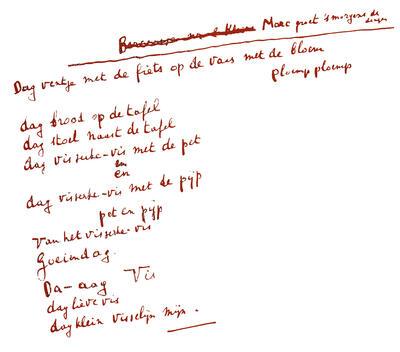 Marc groet 's morgens de dingen
Dag ventje met de fiets op de vaas met de bloem
ploemp ploemp
dag brood op de tafel
dag stoel naast de tafel
dag visserke-vis met de pet
en
en
dag visserke-vis met de pijp
pet en pijp
van het visserke-vis
Goeiendag.
Da-aag Vis
dag lieve vis
dag klein visselijn mijn.